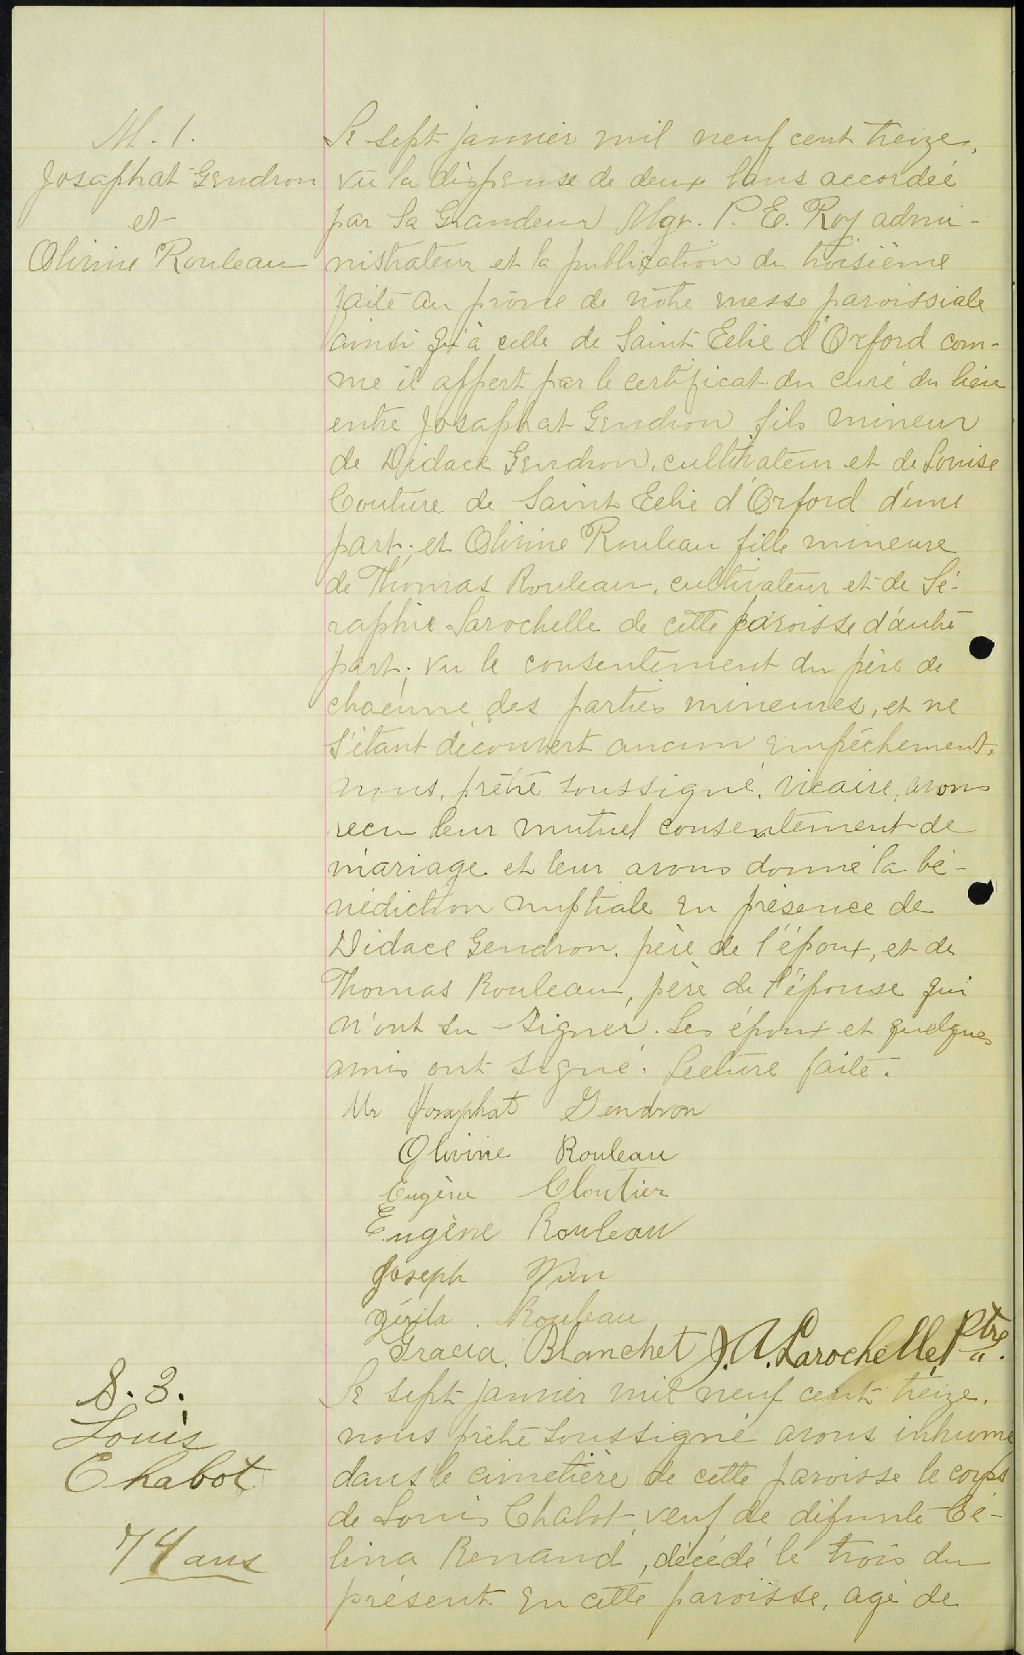 M. 1.
Josaphat Gendron
et
Olivine Rouleau
Le sept janvier mil neuf cent treize,
vu la dispense de deux bans accordée
par Sa Grandeur Mgr. P. E. Roy admi-
nistrateur et la publication du troisième
faite au prône de notre messe paroissiale
ainsi qu'à celle de Saint Eelie d'Orford com-
me il appert par le certificat du curé du lieu
entre Josaphat Gendron fils mineur
de Didace Gendron, cultivateur et de Louise
Couture de Saint Eelie d'Orford d'une
part; et Olivine Rouleau fille mineure
de Thomas Rouleau, cultivateur et de Sé-
raphie Larochelle de cette paroisse d'autre
part; vu le consentement du père de
chacune des parties mineures, et ne
s'étant découvert aucun empêchement,
nous, prêtre soussigné, vicaire, avons
recu leur mutuel consentement de
mariage et leur avons donné la bé-
nédiction nuptiale en présence de
Didace Gendron, père de l'époux, et de
Thomas Rouleau, père de l'épouse qui
n'ont su signer. Les époux et quelques
amis ont signé. Lecture faite.
Mr Josaphat Gendron
Olivine Rouleau
Eugène Cloutier
Eugène Rouleau
Joseph
Rouleau
Gracia Blanchet J. A. Larochelle, Ptre.
S. 3.
Louis
Chabot
74 ans
Le sept janvier mil neuf cent treize,
nous prêtre soussigné avons inhumé
dans le cimetière de cette paroisse le corps
de Louis Chabot, veuf de défunte Cé-
lina Renaud, décédé le trois du
présent en cette paroisse, agé de